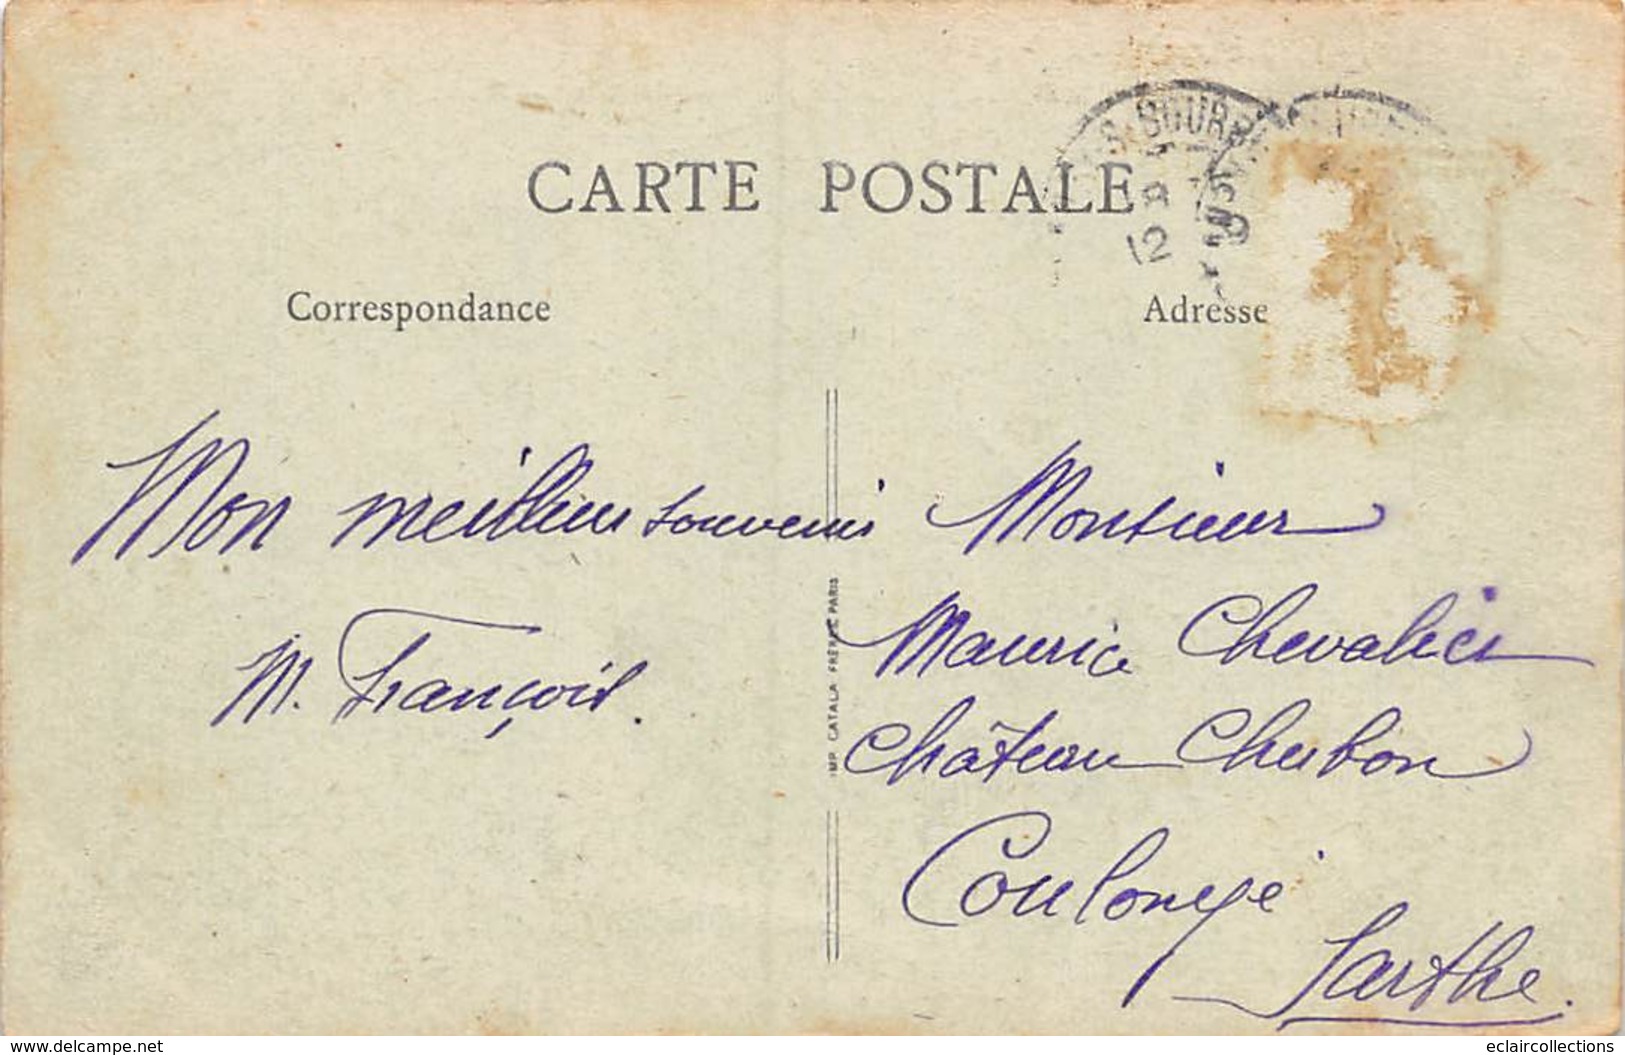 CARTE POSTALE
Correspondance
Adresse
Mon meilleur souvenir
M. François.
IMP. CATALA FRÈRES PARIS
Monsieur
Maurice Chevalier
Château Cherbon
Coulongé
Sarthe.
www.delcampe.net
eclaircollections